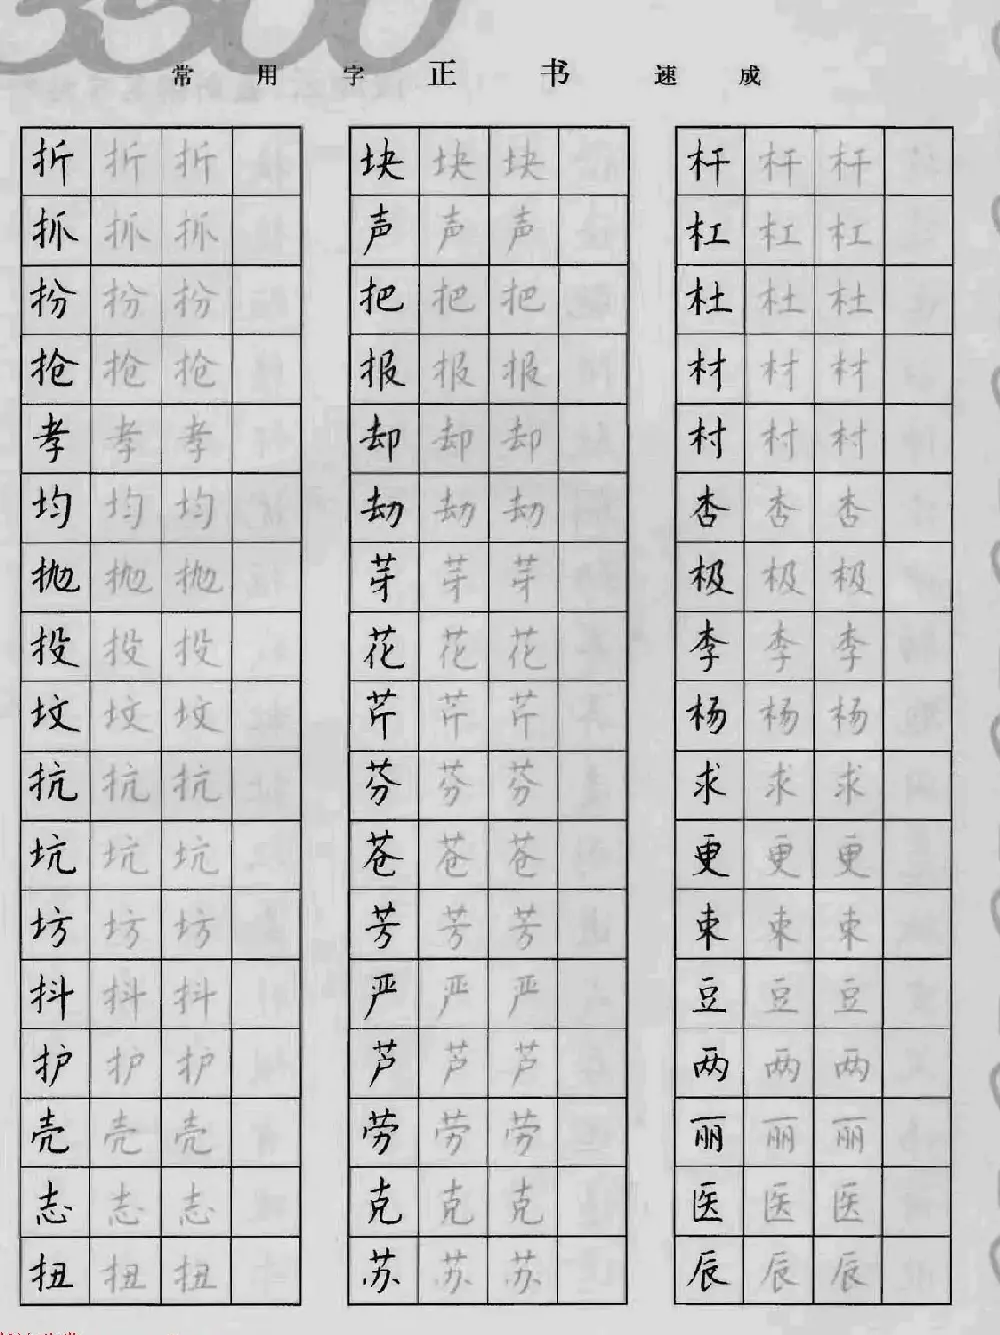 3500
常用字正书速成
折 折 折 块 块 块 杆 杆 杆
抓 抓 抓 声 声 声 杠 杠 杠
扮 扮 扮 把 把 把 杜 杜 杜
抢 抢 抢 报 报 报 材 材 材
孝 孝 孝 却 却 却 村 村 村
均 均 均 劫 劫 劫 杏 杏 杏
抛 抛 抛 芽 芽 芽 极 极 极
投 投 投 花 花 花 李 李 李
坟 坟 坟 芹 芹 芹 杨 杨 杨
抗 抗 抗 芬 芬 芬 求 求 求
坑 坑 坑 苍 苍 苍 更 更 更
坊 坊 坊 芳 芳 芳 束 束 束
抖 抖 抖 严 严 严 豆 豆 豆
护 护 护 芦 芦 芦 两 两 两
壳 壳 壳 劳 劳 劳 丽 丽 丽
志 志 志 克 克 克 医 医 医
扭 扭 扭 苏 苏 苏 辰 辰 辰